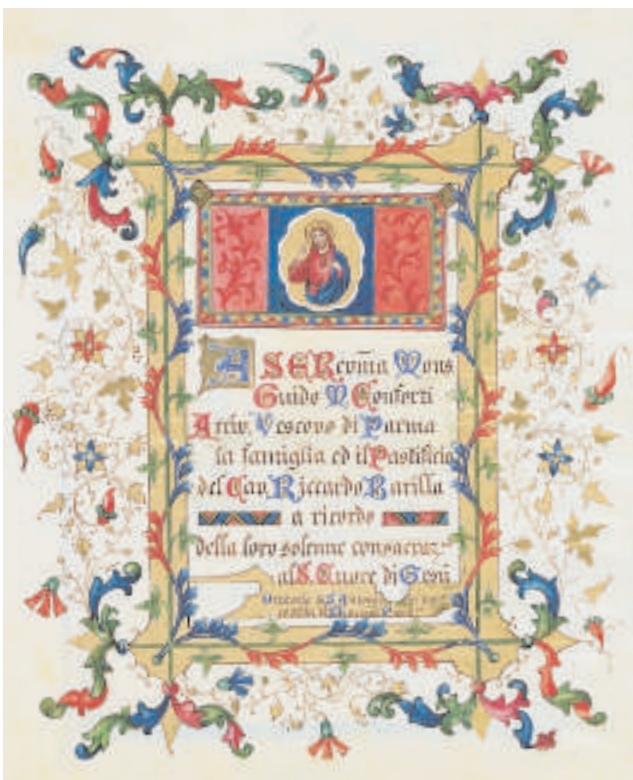 A S E Rev͞ma Mons
Guido M Conforti
Arciv. Vescovo di Parma
la famiglia ed il Pastificio
del Cav. Riccardo Barilla
a ricordo
della loro solenne consacraz.ne
al S. Cuore di Gesù